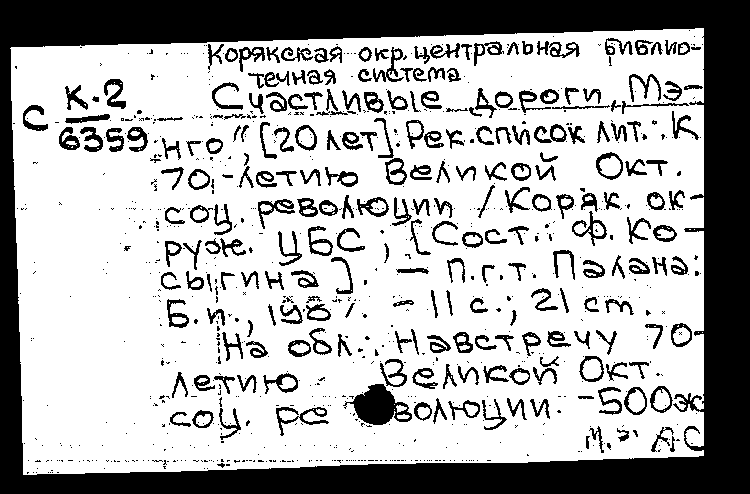 Корякская окр. центральная библио-
течная система
С К.2 6359
Счастливые дороги „Мэ-
нго“, [20 лет]: Рек. список лит.: К
70-летию Великой Окт.
соц. революции / Коряк. ок-
руж. ЦБС; [Сост.: Ф. Ко-
сыгина]. — П.г.т. Палана:
Б.и., 198 . – 11 с.; 21 cm.
На обл.: Навстречу 70-
летию Великой Окт.
соц. ре волюции. –500эк
АС